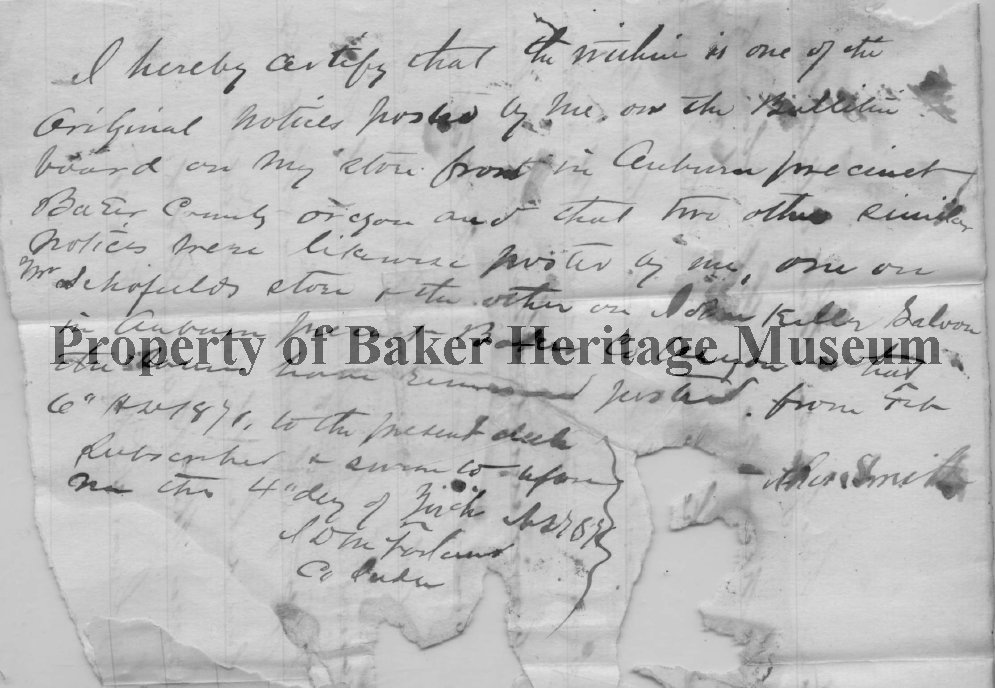 I hereby certify that the within is one of the
Original notices posted by me on the Bulletin
board on my store front in Auburn precinct
Baker County oregon and that two other similar
notices were likewise posted by me, one on
Mr Schofields store & the other on John Keller Saloon
in Auburn precinct Baker Co Oregon & that
Property of Baker Heritage Museum
the same have remained posted from Feb
6" AD 1871, to the present date
Subscribed & sworn to before
me this 4" day of Mch AD 1871
Smith
Co Judge